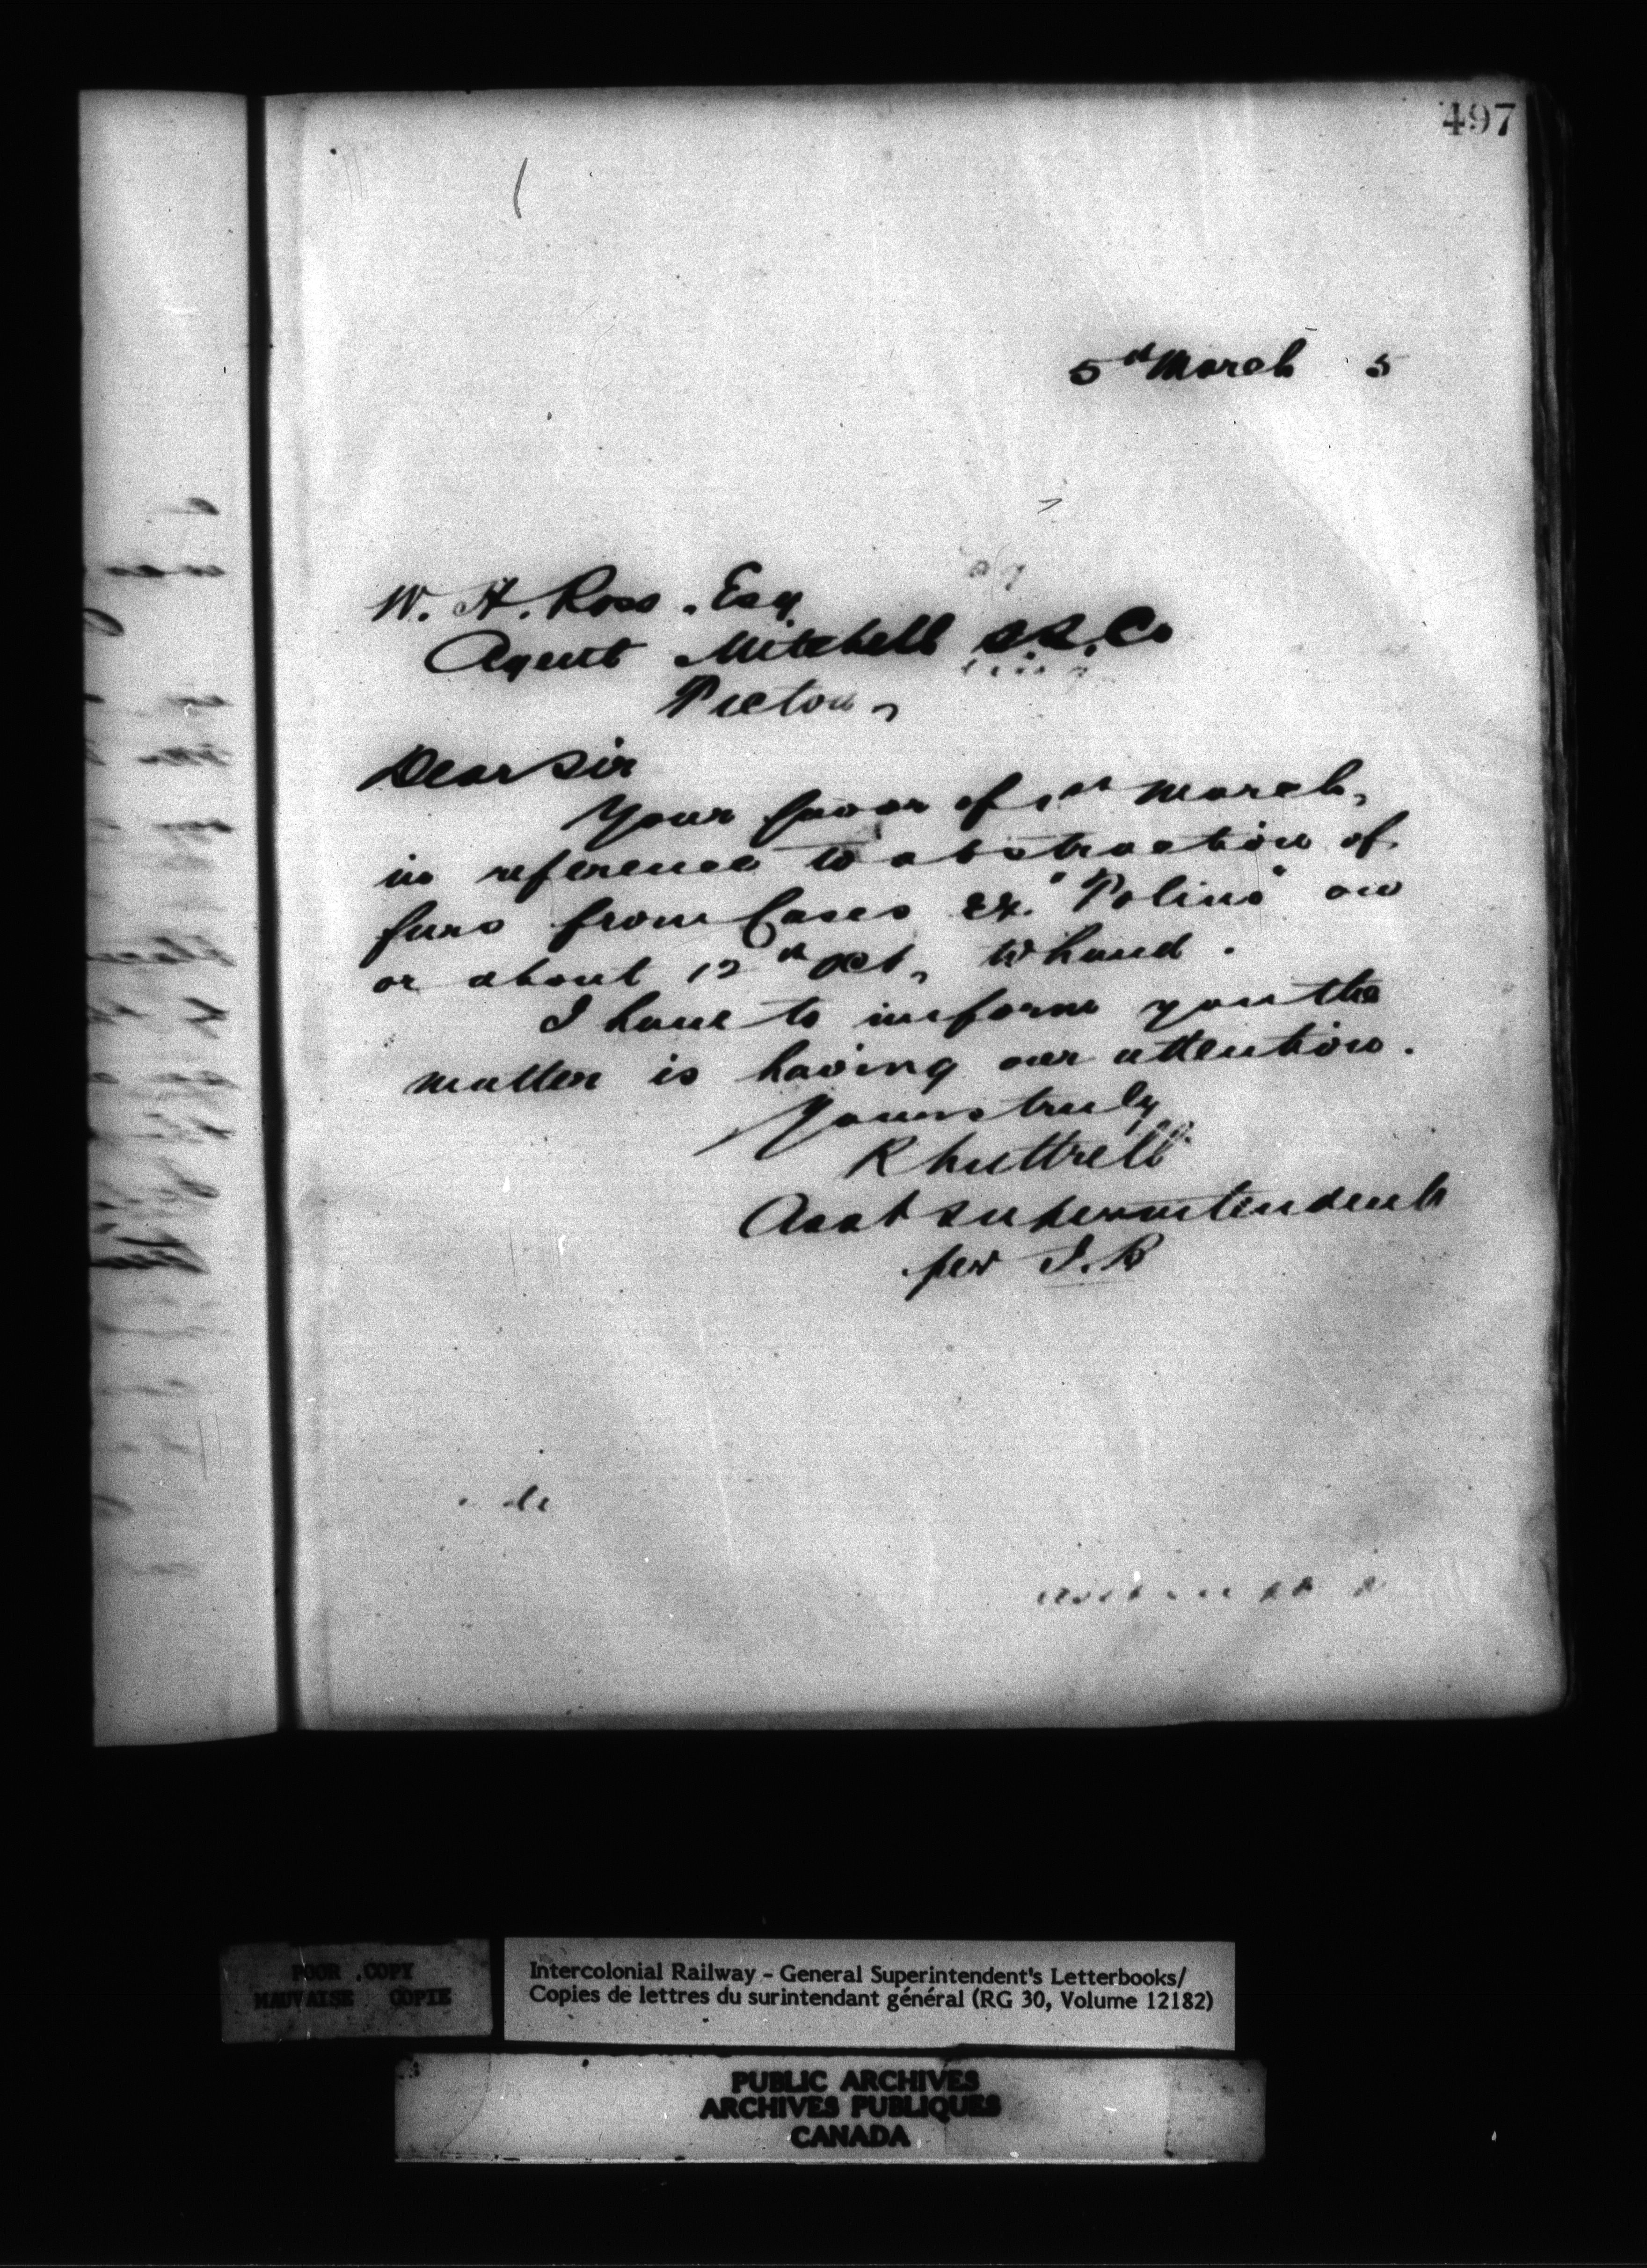 497
5th March 5
W. H. Ross. Esq
Agent Mitchell S.S. Co
Pictou,
Dear Sir
Your favor of 1st March,
in reference to abstraction of
furs from Cases Ex. "Polino" on
or about 12th Oct, to hand.
I have to inform you the
matter is having our attention.
Yours truly
R Luttrell
Asst Superintendent
per J.B
POOR COPY
MAUVAISE COPIE
Intercolonial Railway - General Superintendent's Letterbooks/
Copies de lettres du surintendant général (RG 30, Volume 12182)
PUBLIC ARCHIVES
ARCHIVES PUBLIQUES
CANADA